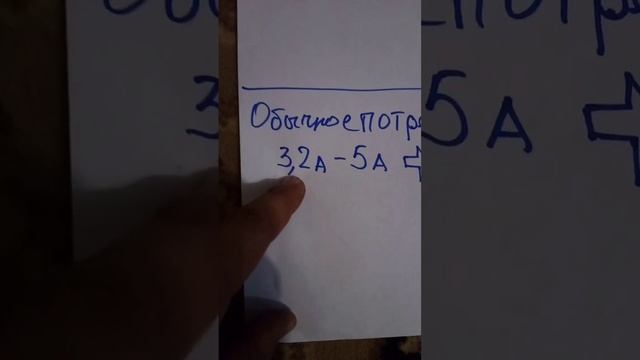 Обычное потре
3,2А - 5А